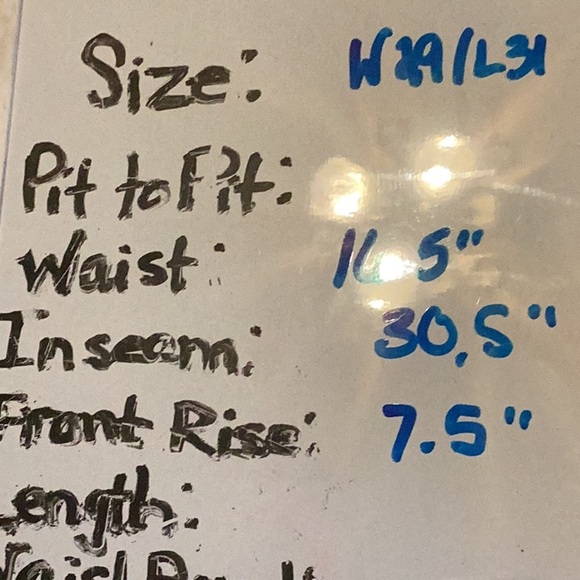 Size: W29/L31
Pit to Pit:
Waist: 16.5"
Inseam: 30.5"
Front Rise: 7.5"
Length: